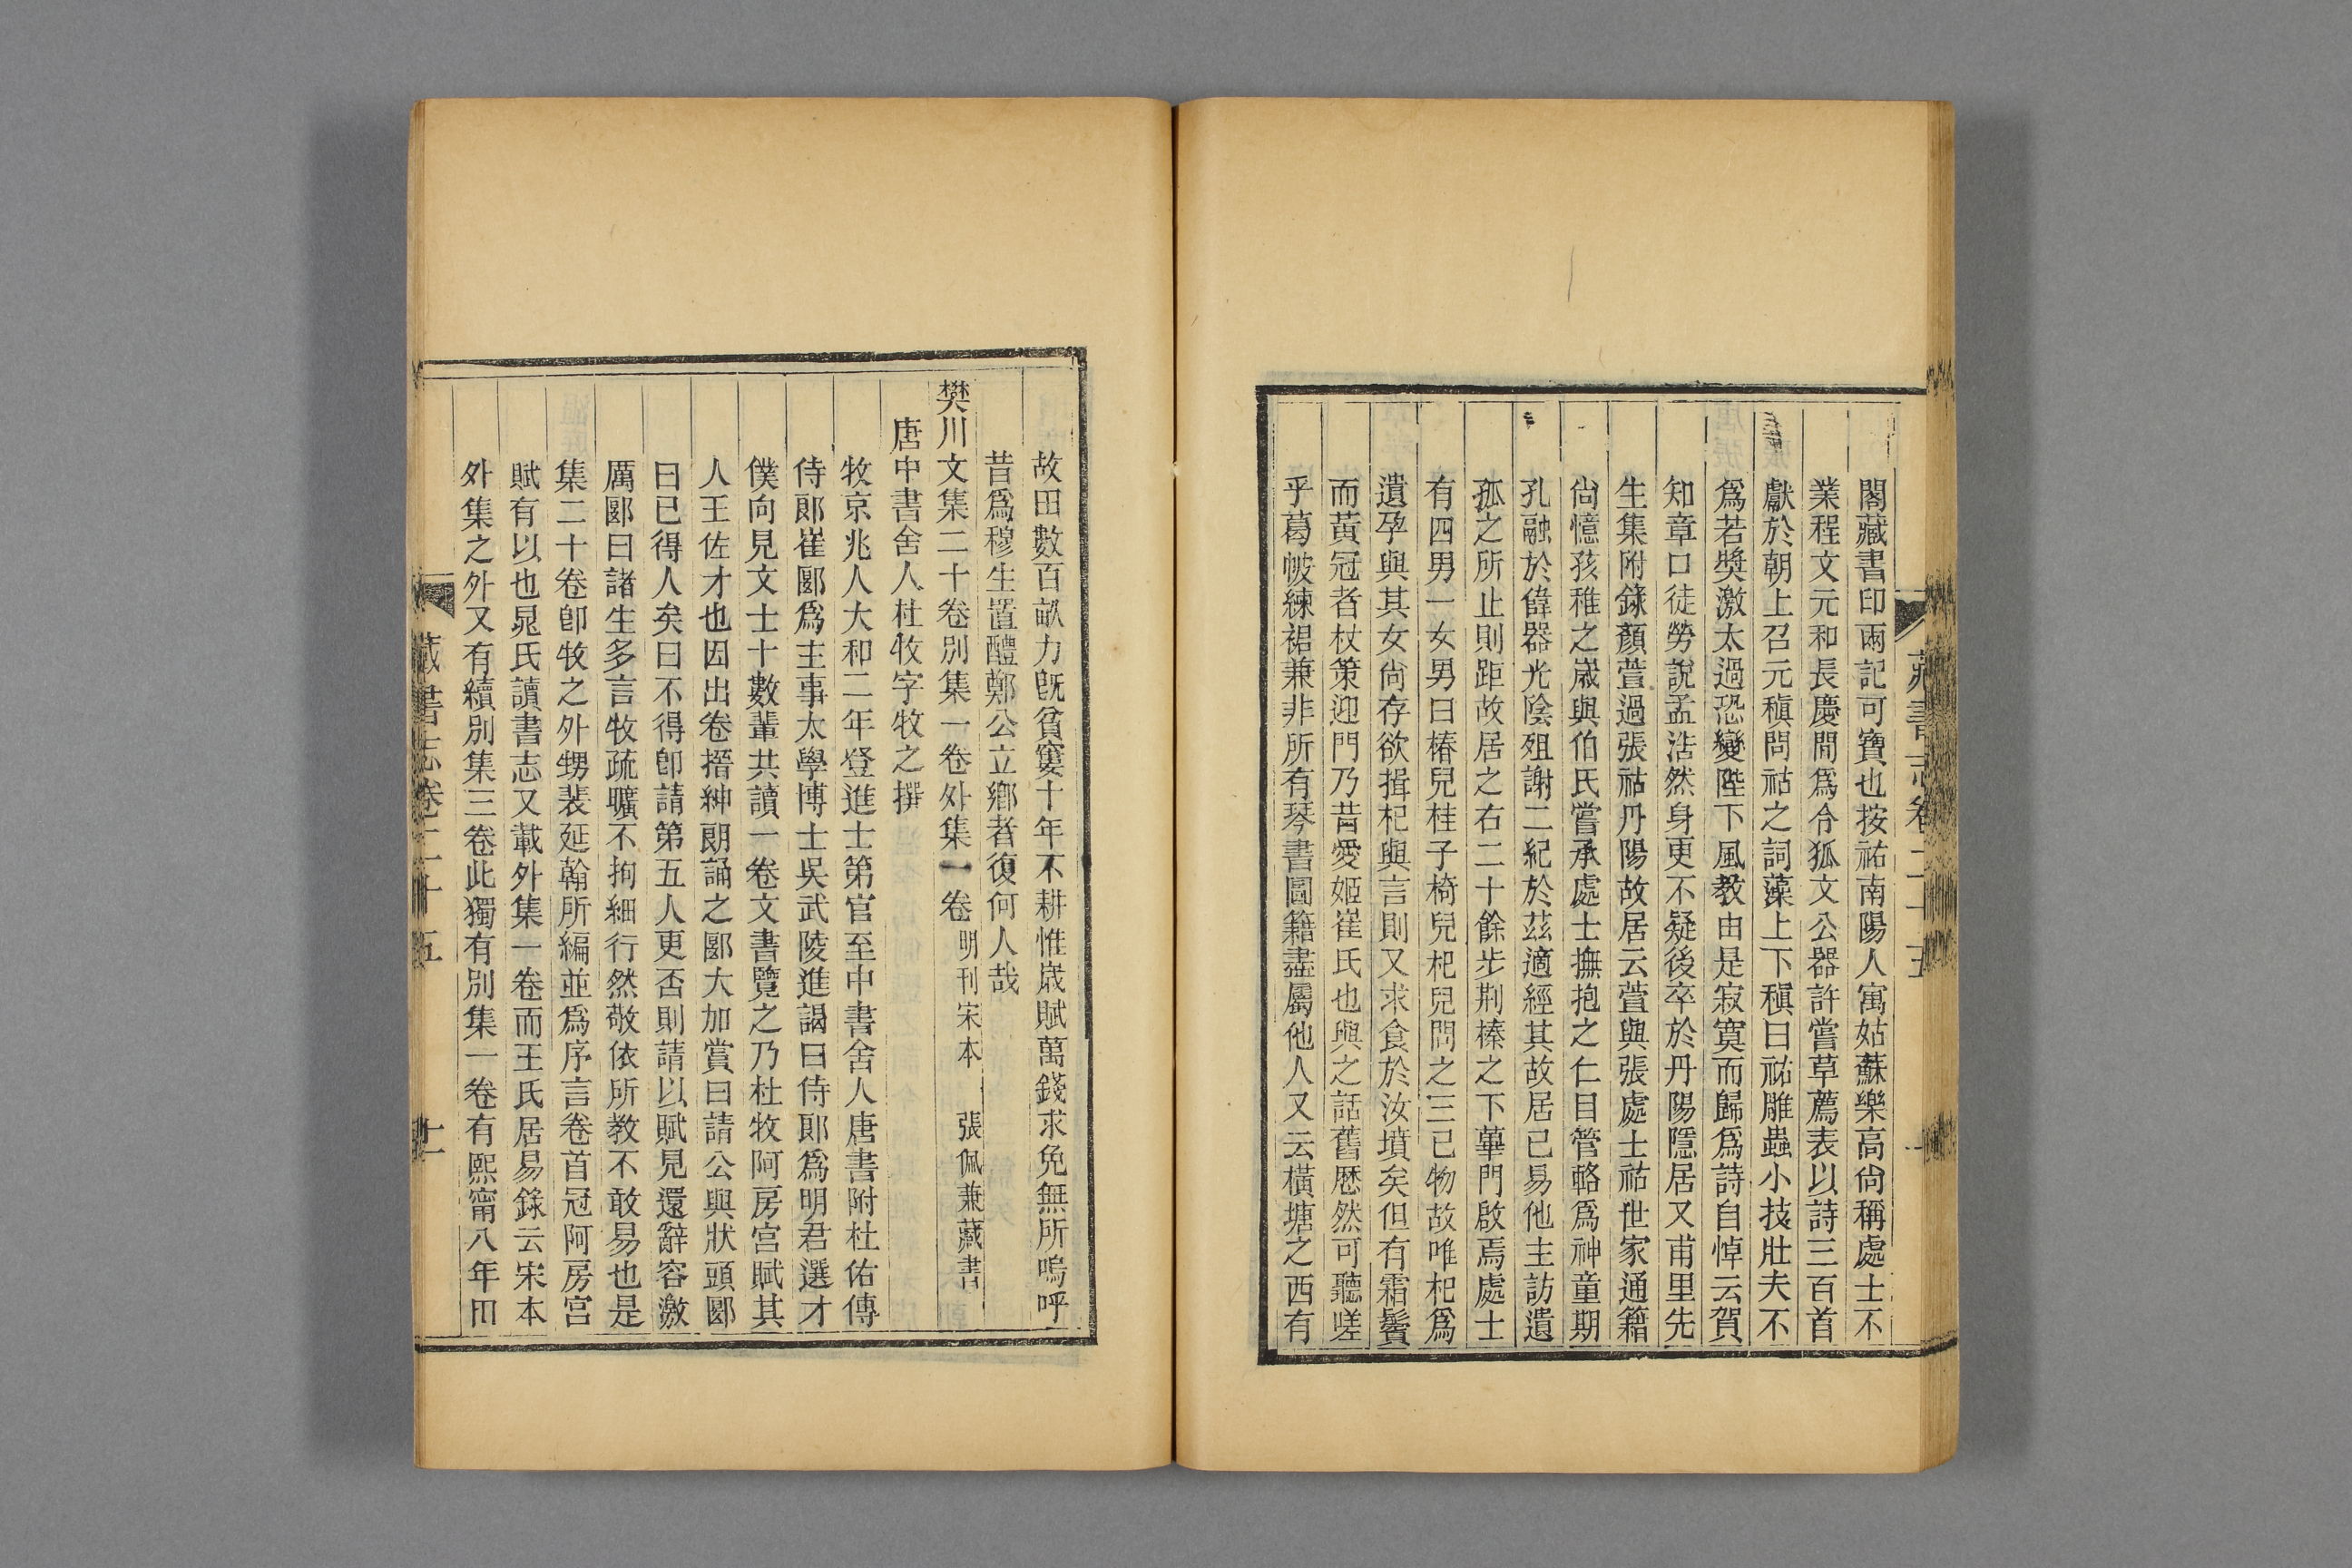 閣藏書印兩記可寶也按祐南陽人寓姑蘇樂高尙稱處士不
業程文元和長慶間爲令狐文公器許嘗草薦表以詩三百首
獻於朝上召元稹問祜之詞藻上下稹曰祐雕蟲小技壯夫不
爲若奬激太過恐變陛下風教由是寂寞而歸爲詩自悼云賀
知章口徒勞說孟浩然身更不疑後卒於丹陽隱居又甫里先
生集附錄顏萱過張祜丹陽故居云萱與張處士祜世家通籍
尙憶孩稚之嵗與伯氏嘗承處士撫抱之仁目管輅爲神童期
孔融於偉器光陰殂謝二紀於茲適經其故居已易他主訪遺
孤之所止則距故居之右二十餘步荆榛之下蓽門啟焉處士
有四男一女男曰椿兒桂子椅兒杞兒問之三已物故唯杞爲
遺孕與其女尙存欲揖杞與言則又求食於汝墳矣但有霜鬢
而黃冠者杖策迎門乃昔愛姬崔氏也與之話舊歴然可聽嗟
乎葛帔練裙兼非所有琴書圖籍盡屬他人又云橫塘之西有
藏書志卷二十五
故田數百畝力旣貧窶十年不耕惟嵗賦萬錢求免無所嗚呼
昔爲穆生置醴鄭公立鄕者復何人哉
樊川文集二十卷別集一卷外集一卷 明刊宋本 張佩兼藏書
唐中書舍人杜牧字牧之撰
牧京兆人大和二年登進士第官至中書舍人唐書附杜佑傳
侍郞崔郾爲主事太學博士吳武陵進謁曰侍郞爲明君選才
僕向見文士十數輩共讀一卷文書覽之乃杜牧阿房宮賦其
人王佐才也因出卷搢紳朗誦之郾大加賞曰請公與狀頭郾
曰已得人矣曰不得卽請第五人更否則請以賦見還辭容激
厲郾曰諸生多言牧疏曠不拘細行然敬依所教不敢易也是
集二十卷卽牧之外甥裴延翰所編並爲序言卷首冠阿房宮
賦有以也晁氏讀書志又載外集一卷而王氏居易錄云宋本
外集之外又有續別集三卷此獨有別集一卷有熙甯八年田
藏書志卷二十五 十一